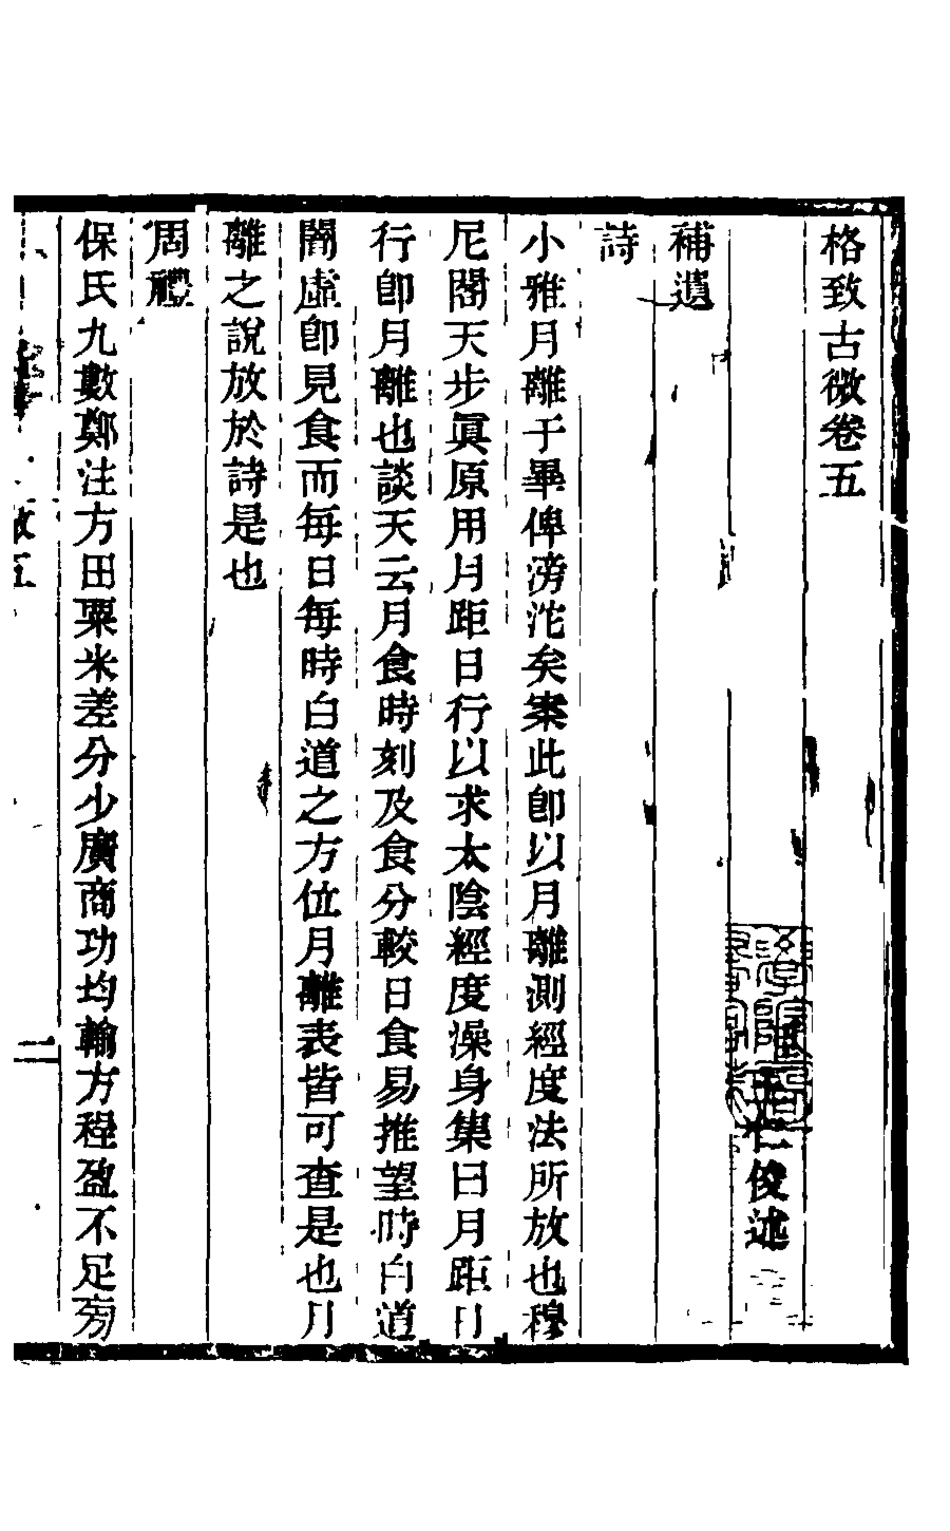 格致古微卷五
王仁俊述
補遺
詩
小雅月離于畢俾滂沱矣案此卽以月離測經度法所放也穆
尼閣天步眞原用月距日行以求太陰經度澡身集曰月距日
行卽月離也談天云月食時刻及食分較日食易推望時白道
闇虛卽見食而每日每時白道之方位月離表皆可查是也月
離之說放於詩是也
周禮
保氏九數鄭注方田粟米差分少廣商功均輸方程盈不足旁